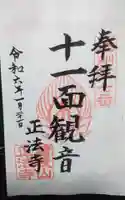 奉拝
十一面観音
正法寺
令和六年一月二十一日